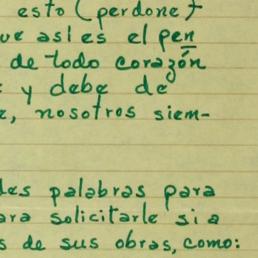 esto (perdone)
ue así es el pen
de todo corazón
y debe de
e, nosotros siem-
des palabras para
ara solicitarle si a
s de sus obras, como: